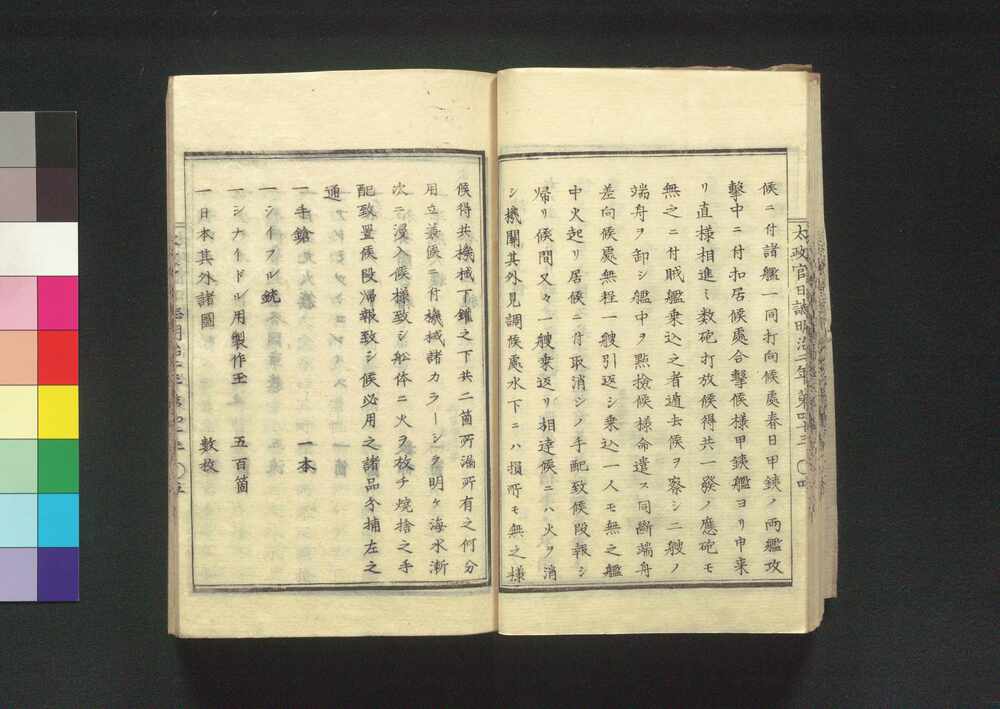 太政官日誌明治二年第四十三 〇四
候ニ付諸艦一同打向候處春日甲鉄ノ両艦攻
撃中ニ付扣居候處合擊候樣甲鉄艦ヨリ申来
リ直様相進ミ数砲打放候得共一發ノ應砲モ
無之ニ付賊艦乗込之者遁去候ヲ察シ二艘ノ
端舟ヲ卸シ艦中ヲ點檢候様命遣ス同断端舟
差向候處無程一艘引返シ乗込一人モ無之艦
中火起リ居候ニ付取消シノ手配致候段報シ
帰リ候間又々一艘乗返リ相達候ニハ火ヲ消
シ機關其外見調候處水下ニハ損所モ無之様
候得共機械下鑵之下共二箇所漏所有之何分
用立兼候ニ付機械諸カラーンヲ明ケ海水漸
次ニ漫入候様致シ船体ニ火ヲ放チ焼捨之手
配致置候段帰報致シ候必用之諸品分捕左之
通
一手鎗 一本
一シイフル銃
一シナイドル用製作玉 五百箇
一日本其外諸圖 数枚